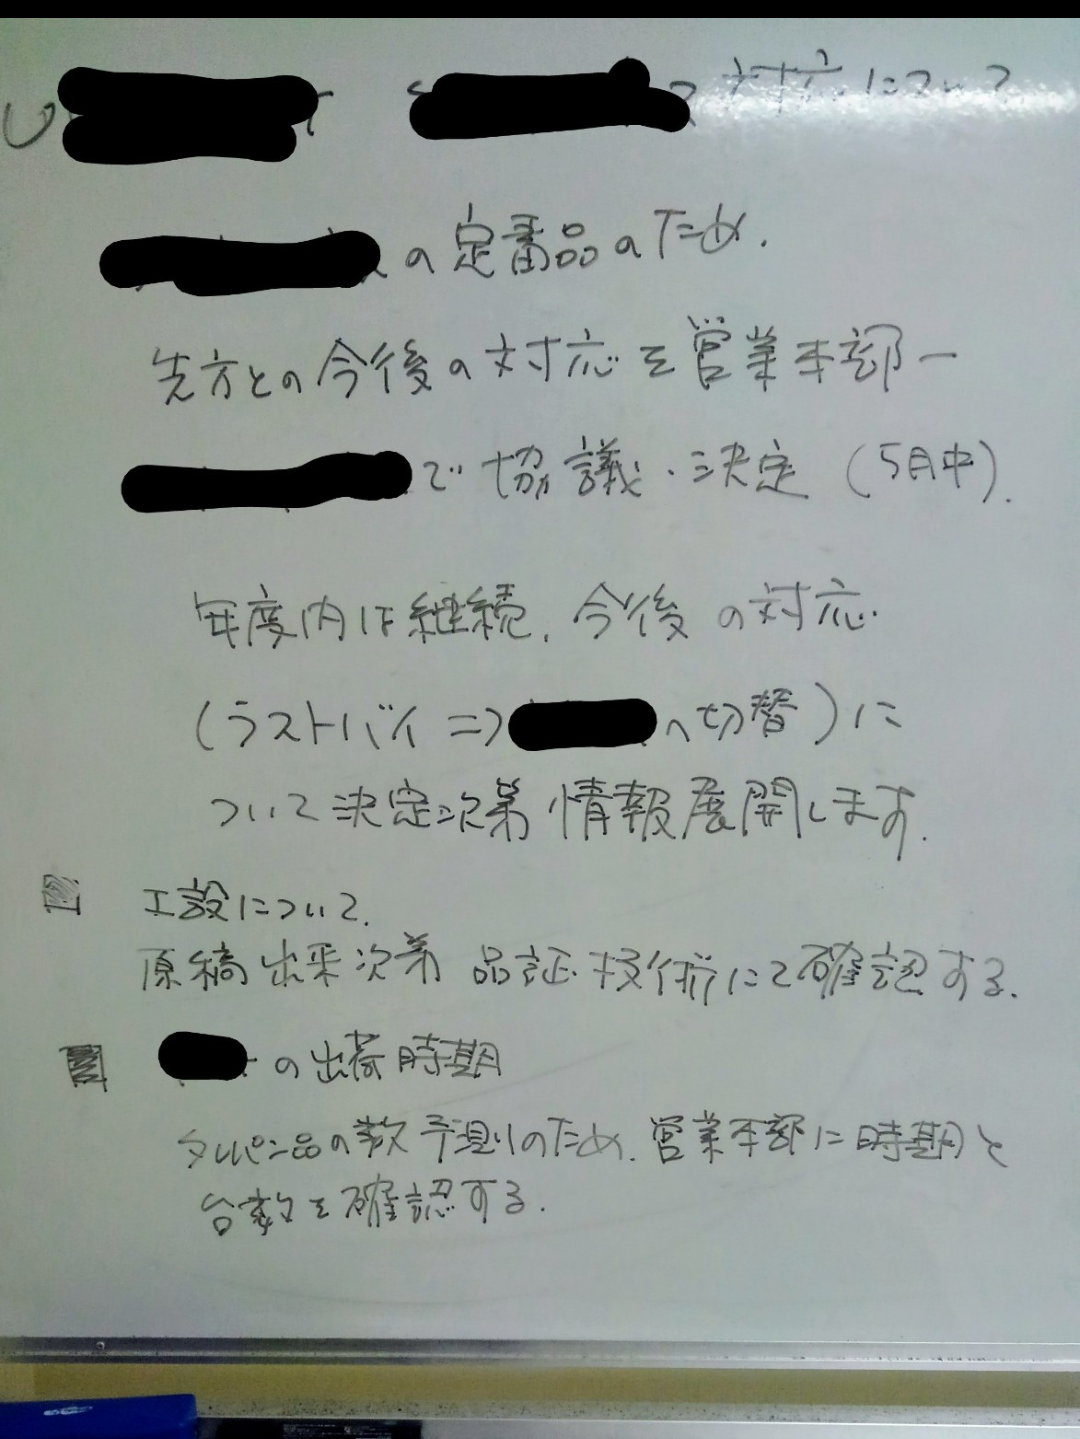 対応について
の定番品のため.
先方との今後の対応を営業本部ー
で協議・決定(5月中).
年度内は継続.今後の対応
(ラストバイ⇒へ切替)に
ついて決定次第情報展開します.
工設について.
原稿出来次第 品証・技術にて確認する.
の出荷時期
タルパン品の数予測のため.営業本部に時期と
台数を確認する.